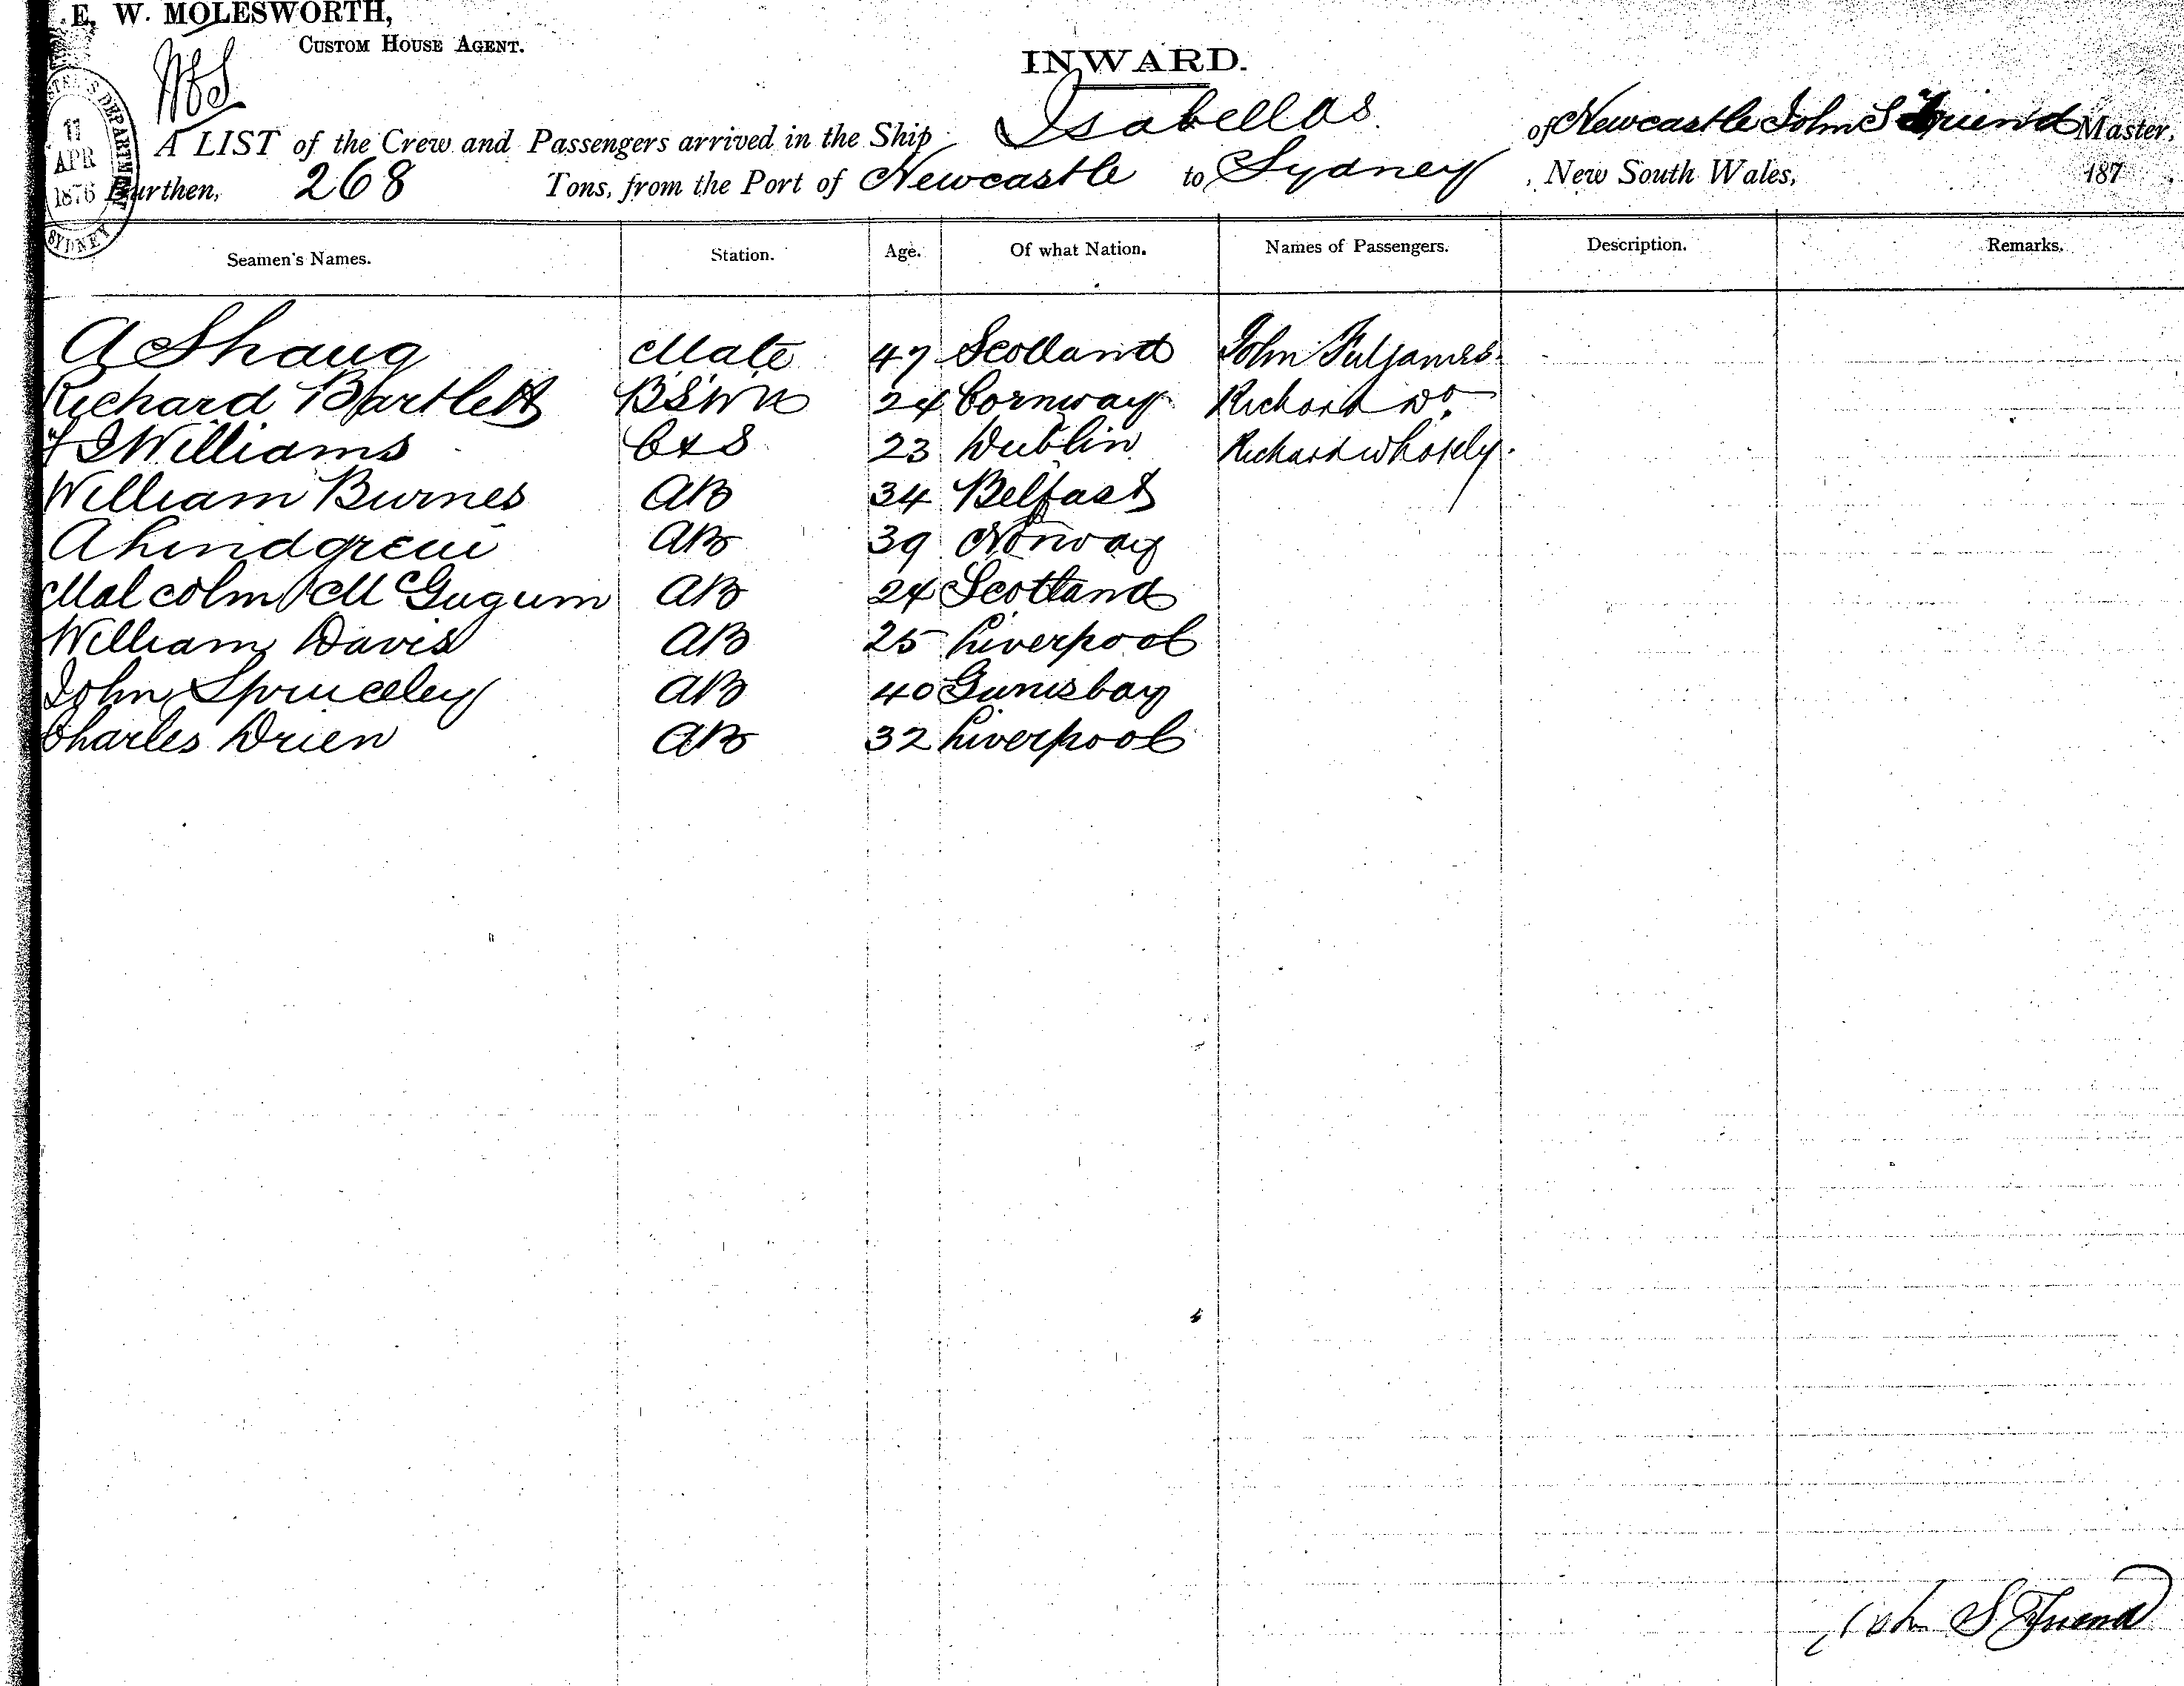 E. W. MOLESWORTH,
CUSTOM HOUSE AGENT.
INWARD.
DEPARTMENT
11
APR
1876
SYDNEY
A LIST of the Crew and Passengers arrived in the Ship Isabellas of Newcastle John S Friend Master,
Burthen, 268 Tons, from the Port of Newcastle to Sydney, New South Wales, 187
Seamen's Names. Station. Age. Of what Nation. Names of Passengers. Description. Remarks.
A Shaug Mate 47 Scotland John Fuljames
Richard Bartlett BSWN 24 Cornway Richard Do
Williams C&S 23 Dublin Richard Whosely
William Burnes AB 34 Belfast
A Lindgreui AB 39 Norway
Malcolm McGugum AB 24 Scotland
William Davis AB 25 Liverpool
John Spruceley AB 40 Gunisbay
Charles Drien AB 32 Liverpool
John S Friend